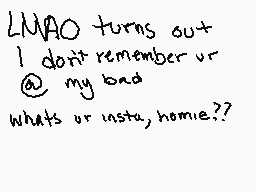 LMAO turns out
I don't remember ur
@ my bad
whats ur insta, homie??